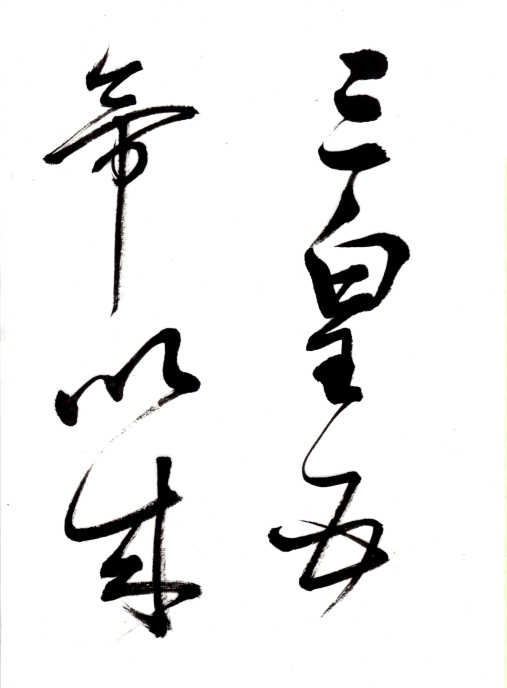 三皇五
帝以来